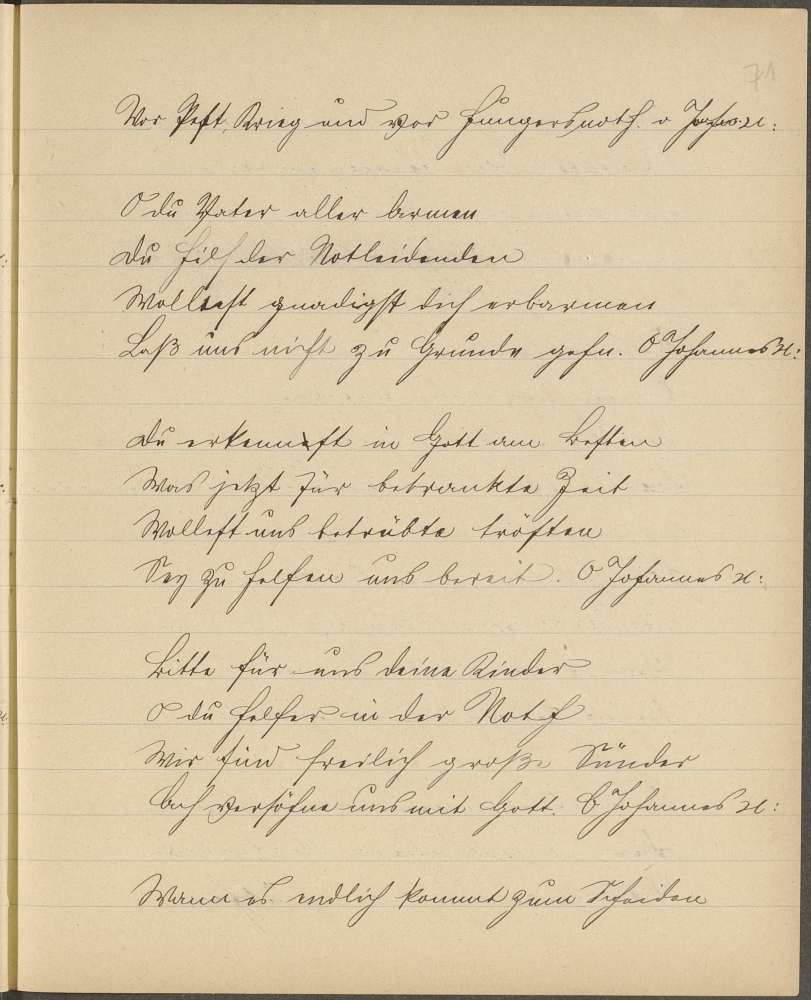 71
Vor Pest, Krieg und vor Hungersnoth. o Johs. &:
O du Vater aller Armen
du Hilf der Notleidenden
Wollest gnadigst dich erbarmen
Laß uns nicht zu Grunde gehn. O Johannes &:
Du erkennst in Gott am Besten
Was jetzt für betrankte Zeit
Wollest uns betrübte trösten
Sey zu helfen uns bereit. O Johannes &:
Bitte für uns deine Kinder
O du Helfer in der Noth
Wir sind freilich große Sünder
Ach versöhne uns mit Gott. O Johannes &:
Wann es endlich kommt zum Scheiden